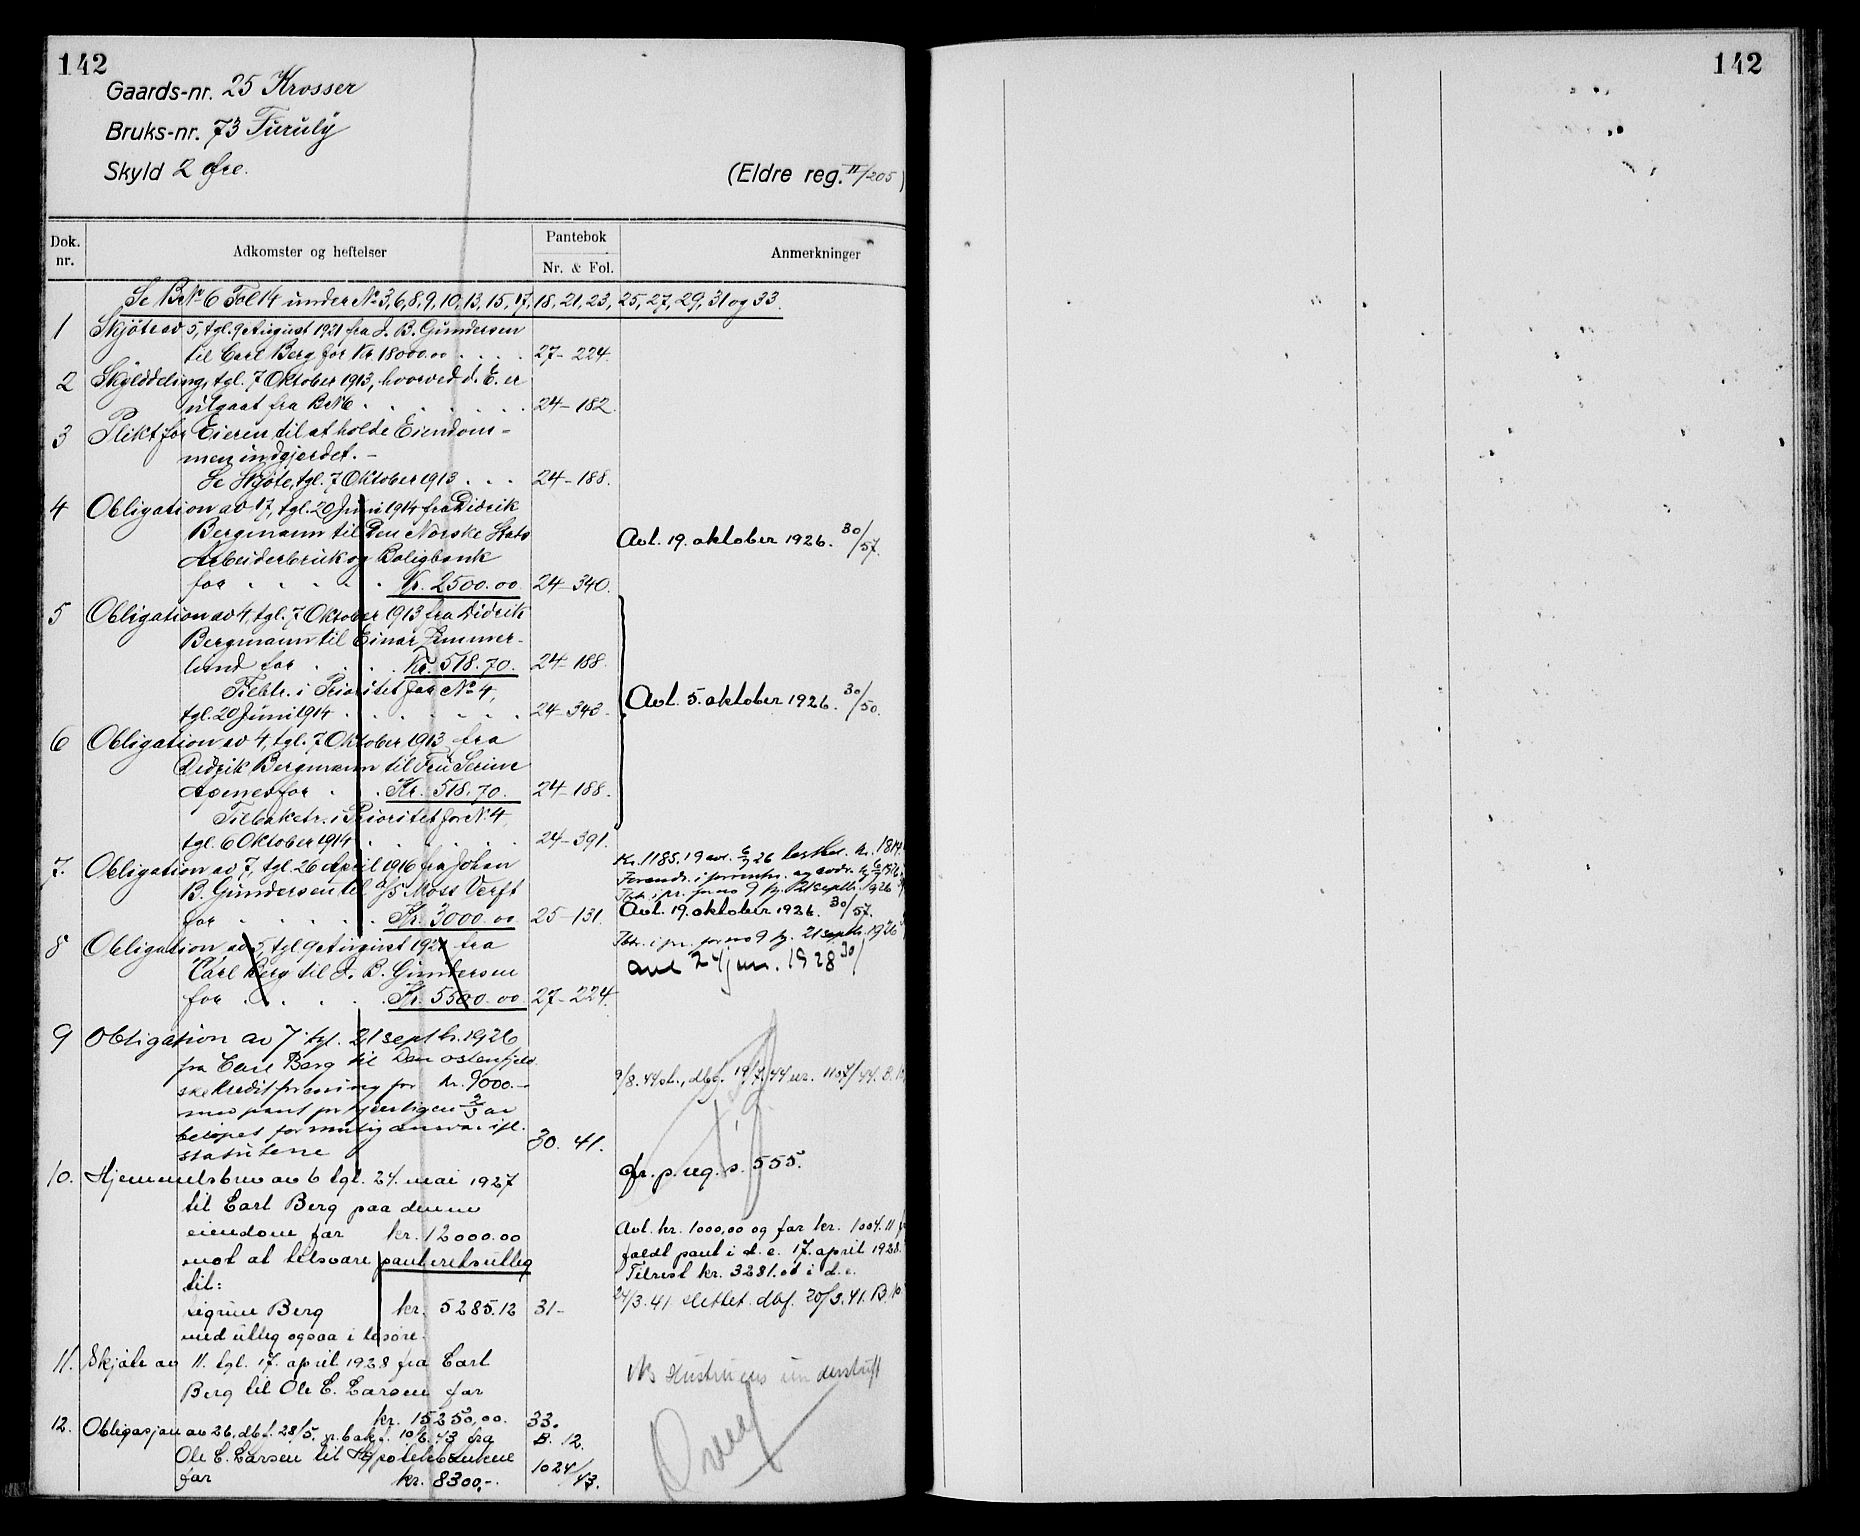 142
Gaards-nr. 25 Krosser
Bruks-nr. 73 Furuly
Skyld 2 Øre.
(Eldre reg. II/205)
Dok. nr.
Adkomster og heftelser
Pantebok
Nr. & Fol.
Anmerkninger
Se BNo 6 Fol 14 under No 3, 6, 8, 9, 10, 13, 15, 17, 18, 21, 23, 25, 27, 29, 31 og 33.
1 Skjøte av 5, tgl. 9 August 1921 fra J. B. Gundersen
til Carl Berg for Kr. 18000.00 . . . . 27-224.
2 Skylddeling, tgl. 7 Oktober 1913, hvorved d. E. er
utgaat fra BN6 . . . . . . 24-182.
3 Plikt for Eieren til at holde Eiendom-
men indgjerdet.-
Se Skjøte, tgl. 7 Oktober 1913 . . . 24-188.
4 Obligation av 17, tgl. 20 Juni 1914 fra Didrik
Bergmann til Den Norske Stats
Arbeiderbruk og Boligbank
for . . . . . Kr. 2500.00 24-340.
Avl. 19. oktober 1926. 30/57.
5 Obligation av 4, tgl. 7 Oktober 1913 fra Didrik
Bergmann til Einar Emmer-
lund for . . . . Kr. 518.70. 24-188.
Tilbtr. i Prioritet for No 4,
tgl. 20 Juni 1914 . . . . . . 24-343.
Avl. 5. oktober 1926. 30/50.
6 Obligation av 4, tgl. 7 Oktober 1913 fra
Didrik Bergmann til Fru Serine
for . . Kr. 518.70. 24-188.
Tilbaketr. i Prioritet for N 4,
tgl. 6 Oktober 1914 . . . . . 24-391.
7. Obligation av 7, tgl. 26 April 1916 fra Johan
B. Gundersen til A/S Moss Verft
for . . . . . Kr. 3000.00 25-131.
Kr. 1185.19 avl. 26
i pr. for no 9 tg. 21 septbr. 1926
Avl. 19. oktober 1926. 30/57.
8 Obligation av 5, tgl 9 August 1921 fra
Carl Berg til J. B. Gundersen
for . . . . . Kr. 5500.00 27-224.
Tbtr. i pr. for no 9 tg. 21 septbr. 1926
avl 24 jan. 1928 30/
9 Obligation av 7. tgl. 21 septbr. 1926
fra Carl Berg til Den østenfjeld
ske Kreditforening for kr. 9000.-
med pant for
beløpet ansvar ifl.
statutene 30. 41.
9/8.44 sl., dbf. 19/7.44 nr. 1107/44. B.
10. Hjemmelsbrev av 6 tgl. 24. mai 1927
til Carl Berg paa denne
eiendom for kr. 12000.00
mot at tilsvare panteretsutlæg
til:
Sigrun Berg kr. 5285.12 31-
med utlæg ogsaa i løsøre.
jfr. p. reg. s. 555.
Avl. kr. 1000,00 og for kr. 1004.11
faldt pant i d. e. 17. april 1928.
Tilrest kr. 3281.01 i d. e.
24/3.41 slettet. dbf. 20/3.41. B.
11. Skjøte av 11. tgl. 17. april 1928 fra Carl
Berg til Ole E. Larsen for
kr. 15250,00. 33.
NB Hustruens underskrift
12. Obligasjon av 26. dbf. 28/5. 10/6.43 fra
Ole E. Larsen til Hypotekbankene
for kr. 8300,-. B. 12.
1024/43.
142